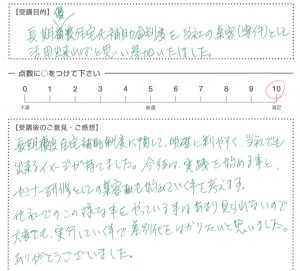 【受講目的】 優
長期優良住宅化補助金制度を、当社の集客(受注)として
活用出来ればと思い参加いたしました。
点数に○をつけて下さい
0 1 2 3 4 5 6 7 8 9 10
不満 普通 満足
【受講後のご意見・ご感想】
長期優良住宅補助制度に関して、明確に判りやすく、当社でも
出来るイメージが持てました。今後は、実践を始める事と、
セミナー研修としての集客も始めていく事を考えます。
他社でこの様な事をやっている事はあまり見られないので
大変でも、実行していく事で差別化をはかりたいと思いました。
ありがとうございました。